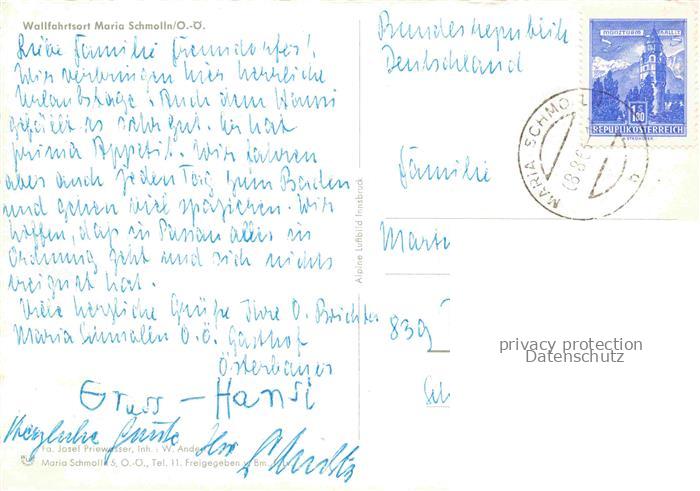 Wallfahrtsort Maria Schmolln/O.-Ö.
Liebe Familie
Wir verbringen hier herrliche
Urlaubstage. Auch dem Hansi
gefällt es sehr gut. Er hat
prima Appetit. Wir fahren
aber auch jeden Tag zum Baden
und gehen viel spazieren. Wir
hoffen, daß in Passau alles in
Ordnung geht und sich nichts
ereignet hat.
Viele herzliche Grüße Ihre O.
Maria Schmolln O.Ö. Gasthof
Österbauer
Gruss - Hansi
Herzliche Grüße Ihr
Fa. Josef Priewasser, Inh.: W. Ande
Maria Schmolln 5, O.-Ö., Tel. 11. Freigegeben v. Bm.
Alpine Luftbild Innsbruck
Bundesrepublik
Deutschland
MÜNZTURM HALL i. T.
S 1.80
REPUBLIK ÖSTERREICH
MARIA SCHMOLLN
Familie
839
privacy protection
Datenschutz